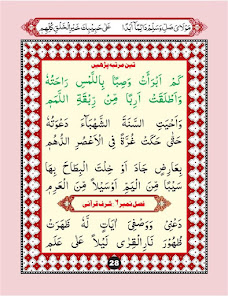 مَوْلَايَ صَلِّ وَسَلِّمْ دَائِمًا اَبَدًا عَلٰى حَبِيْبِكَ خَيْرِ الْخَلْقِ كُلِّهِمِ
تین مرتبہ پڑھیں
كَمْ اَبْرَأَتْ وَصِبًا بِاللَّمْسِ رَاحَتُهٗ
وَاَطْلَقَتْ اَرِبًا مِّنْ رِّبْقَةِ اللَّمَمِ
وَاَحْيَتِ السَّنَةَ الشَّهْبَآءَ دَعْوَتُهٗ
حَتّٰى حَكَتْ غُرَّةً فِى الْاَعْصُرِ الدُّهُمِ
بِعَارِضٍ جَادَ اَوْ خِلْتَ الْبِطَاحَ بِهَا
سَيْبًا مِّنَ الْيَمِّ اَوْ سَيْلًا مِّنَ الْعَرِمِ
فصل نمبر ٦ شرف قرآنی
دَعْنِىْ وَوَصْفِىَ اٰيَاتٍ لَّهٗ ظَهَرَتْ
ظُهُوْرَ نَارِ الْقِرٰى لَيْلًا عَلٰى عَلَمِ
28